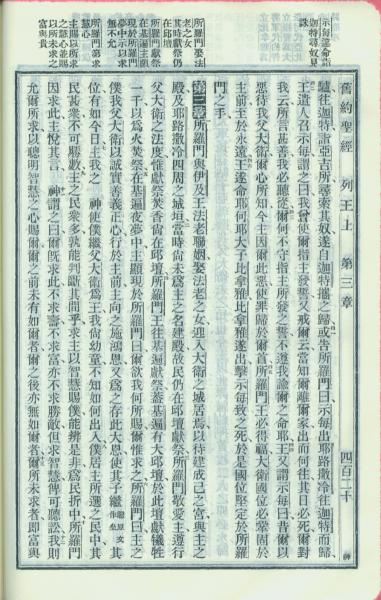 舊約聖經 列王上 第三章 四百二十
示每逆命詣
迦特尋奴見
誅
驢往迦特詣亞吉所尋索其奴遂自迦特攜之歸或告所羅門曰示每出耶路撒冷往迦特而歸
王遣人召示每謂之曰我曾使爾指主發誓又戒爾云當知爾離爾家出而何往其日必死爾對
我云所言甚善我必聽從爾何不守指主所發之誓不遵我諭爾之命耶王又謂示每曰昔爾以
惡待我父大衛爾心所知今主因爾此惡使罪歸於爾首所羅門王必得福大衛國位必鞏固於
主前至於永遠王遂命耶何耶大子比拿雅比拿雅遂出擊示每致之死於是國位堅定於所羅
門之手
所羅門娶法
老之女
其時獻祭仍
在邱壇
所羅門獻祭
在基遍主顯
現於所羅門
夢中示以求
無不允
所羅門第求
慧心
主賜以所求
之慧心並賜
以所未求之
富與貴
第三章所羅門與伊及王法老聯姻娶法老之女迎入大衛之城居焉以待建成己之宮與主之
殿及耶路撒冷四周之城垣當時尚未爲主之名建殿故民仍在邱壇獻祭所羅門敬愛主遵行
父大衛之法度惟獻祭焚香尚在邱壇所羅門王往基遍獻祭蓋基遍有大邱壇於此壇獻犧牲
一千以爲火焚祭在基遍夜夢中主顯現於所羅門曰爾欲我何所賜爾惟求之所羅門曰主之
僕我父大衛以誠實善義正心行於主前主向之施鴻恩又爲之存此大恩使其子繼繼原文作坐其
位有如今日主我之 神使僕繼父大衛爲王我尚幼童不知如何出入僕居主所選之民中其
民甚衆不可勝數主之民衆多孰能判斷其間乎求主以智慧賜僕能辨是非爲民折中所羅門
因求此主悅其言 神謂之曰爾旣求此不求壽不求富亦不求勝敵但求智慧俾可聽訟我則
允爾所求以聰明智慧之心賜爾爾之前未有如爾者爾之後亦無如爾者爾所未求者即富與